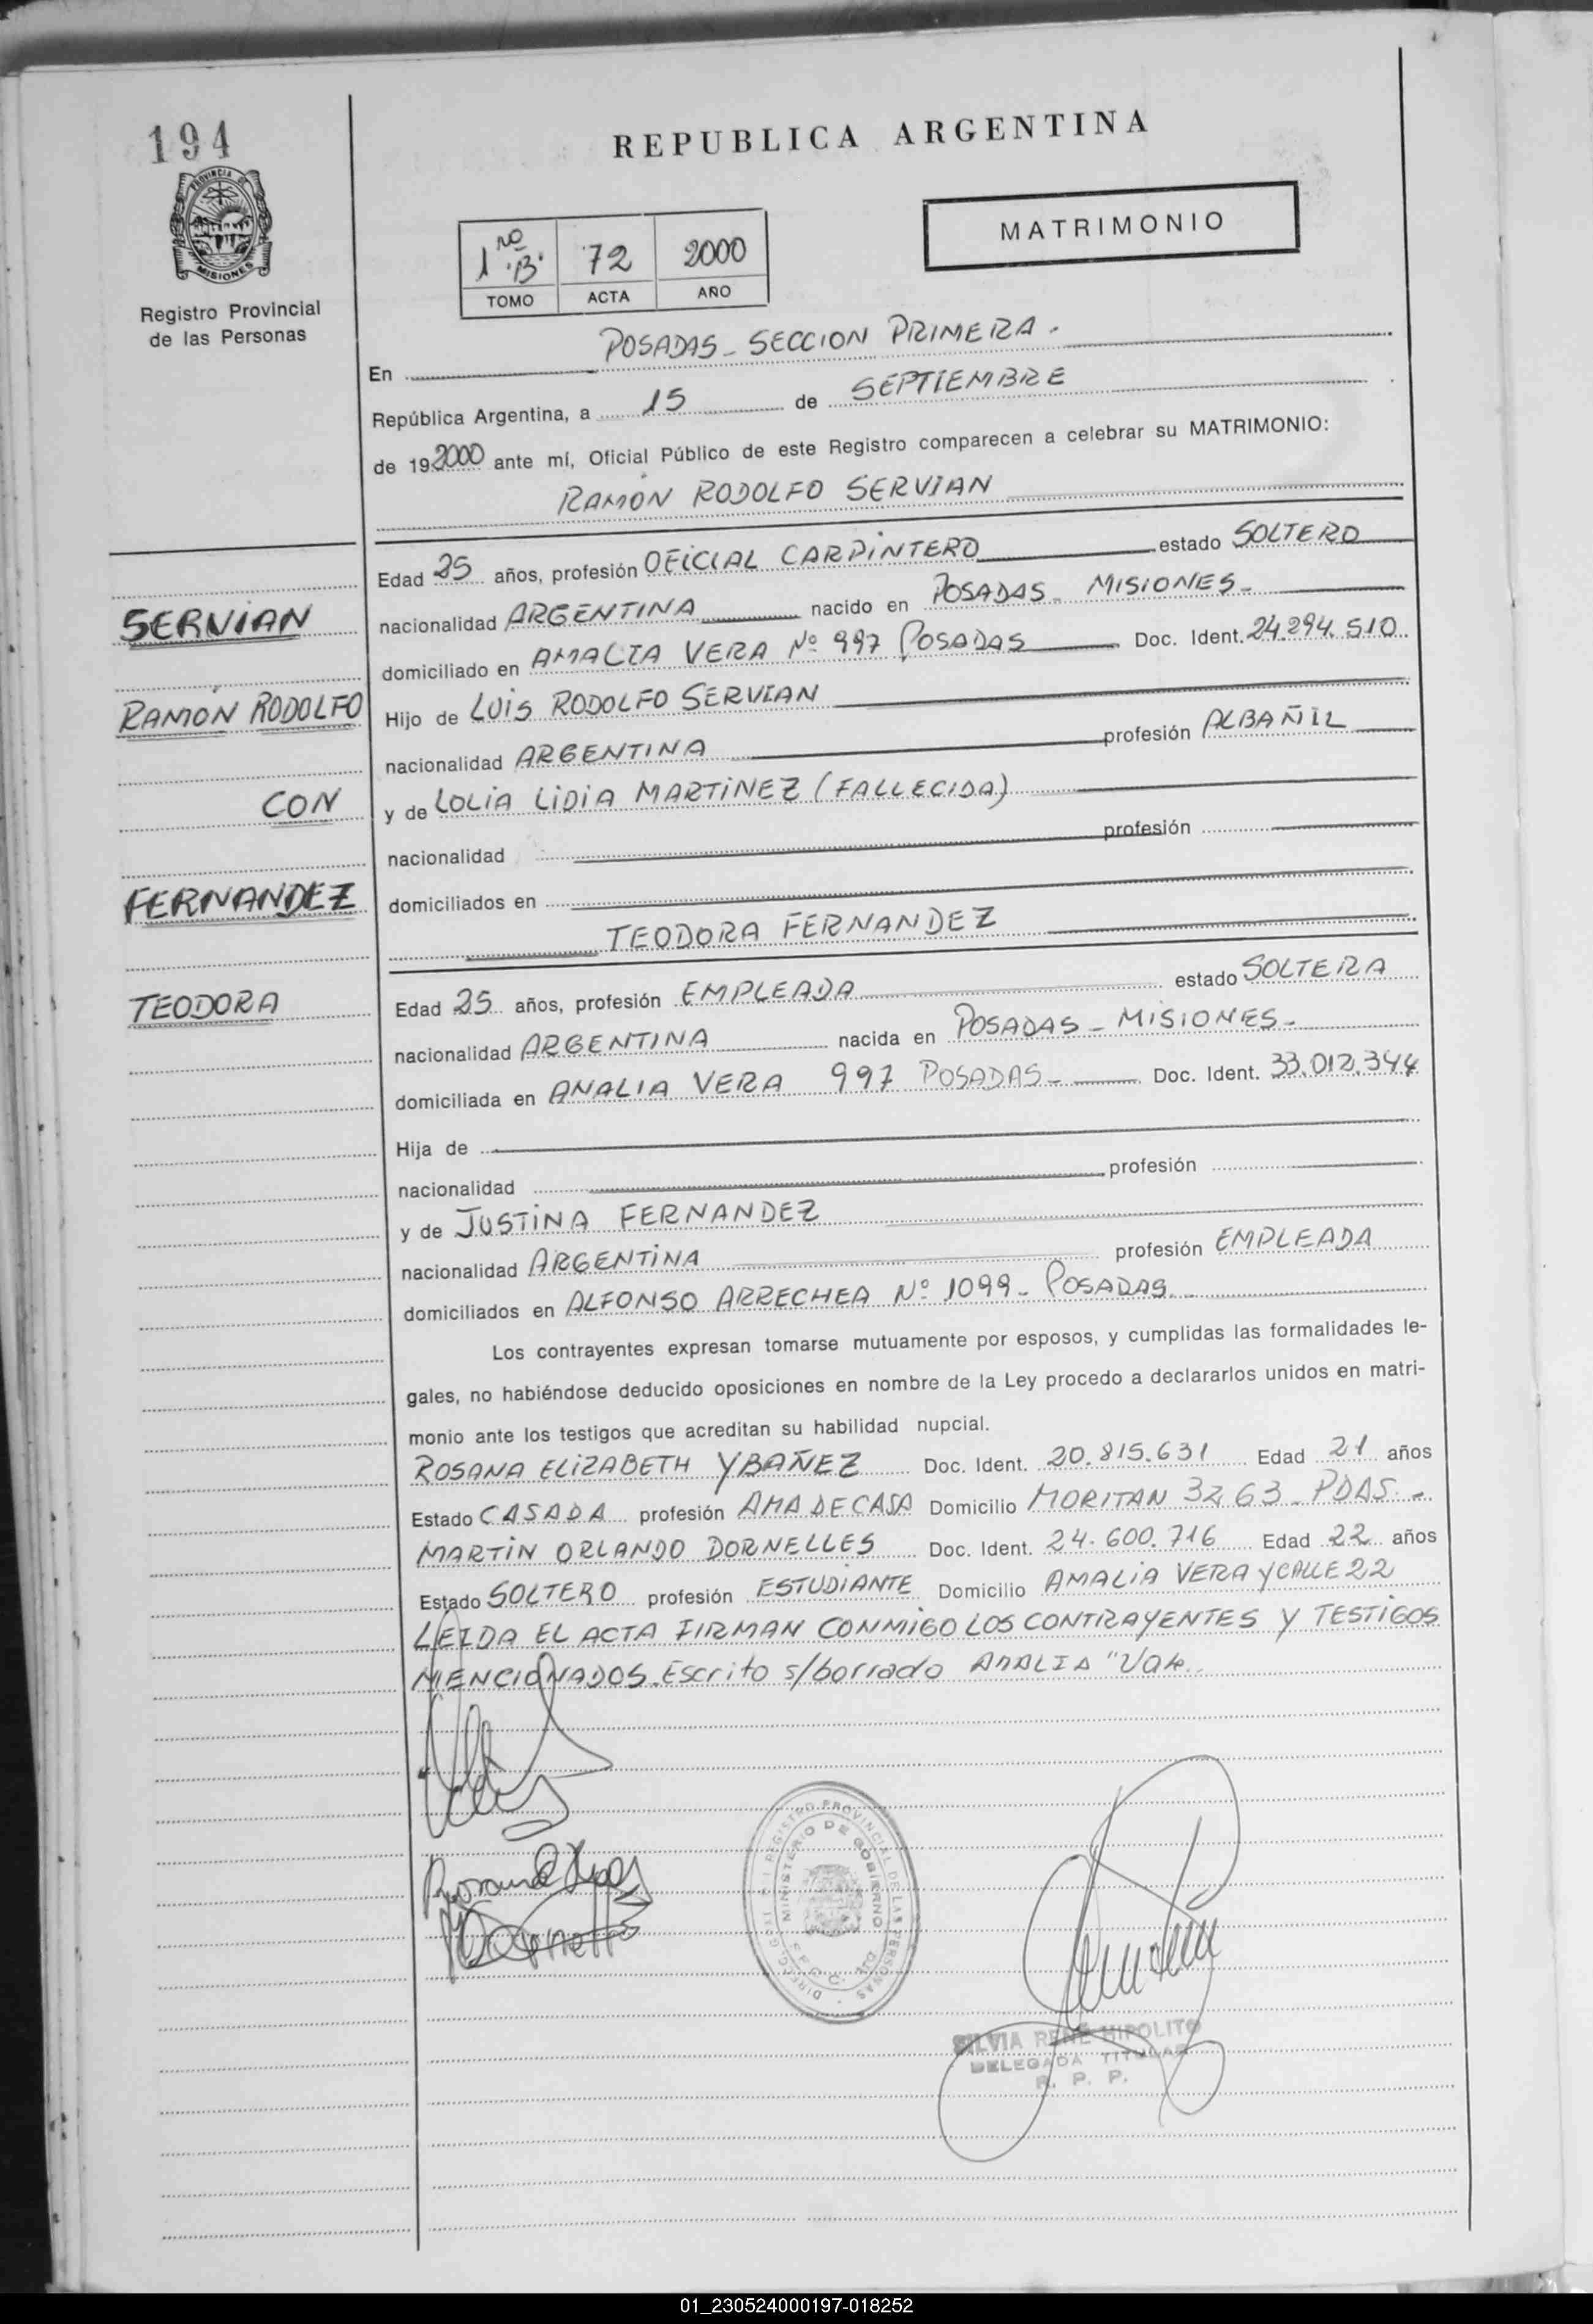 194
REPUBLICA ARGENTINA
PROVINCIA DE
MISIONES
Registro Provincial
de las Personas
1ro "B" 72 2000
TOMO ACTA AÑO
MATRIMONIO
En POSADAS - SECCION PRIMERA.
República Argentina, a 15 de SEPTIEMBRE
de 192000 ante mí, Oficial Público de este Registro comparecen a celebrar su MATRIMONIO:
RAMÓN RODOLFO SERVIAN
Edad 25 años, profesión OFICIAL CARPINTERO estado SOLTERO
SERVIAN
nacionalidad ARGENTINA nacido en POSADAS - MISIONES -
domiciliado en AMALIA VERA Nº 997 POSADAS Doc. Ident. 24.294.510
RAMÓN RODOLFO
Hijo de LUIS RODOLFO SERVIAN
nacionalidad ARGENTINA profesión ALBAÑIL
CON
y de LOLIA LIDIA MARTINEZ (FALLECIDA)
nacionalidad profesión
FERNANDEZ
domiciliados en
TEODORA FERNANDEZ
TEODORA
Edad 25 años, profesión EMPLEADA estado SOLTERA
nacionalidad ARGENTINA nacida en POSADAS - MISIONES -
domiciliada en ANALIA VERA 997 POSADAS - Doc. Ident. 33.012.344
Hija de
nacionalidad profesión
y de JUSTINA FERNANDEZ
nacionalidad ARGENTINA profesión EMPLEADA
domiciliados en ALFONSO ARRECHEA Nº 1099 - POSADAS
Los contrayentes expresan tomarse mutuamente por esposos, y cumplidas las formalidades le-
gales, no habiéndose deducido oposiciones en nombre de la Ley procedo a declararlos unidos en matri-
monio ante los testigos que acreditan su habilidad nupcial.
ROSANA ELIZABETH YBAÑEZ Doc. Ident. 20.815.631 Edad 21 años
Estado CASADA profesión AMA DE CASA Domicilio MORITAN 3263 - PDAS. -
MARTIN ORLANDO DORNELLES Doc. Ident. 24.600.716 Edad 22 años
Estado SOLTERO profesión ESTUDIANTE Domicilio AMALIA VERA Y CALLE 22
LEIDA EL ACTA FIRMAN CONMIGO LOS CONTRAYENTES Y TESTIGOS
MENCIONADOS. Escrito s/borrado AMALIA "Vale.
REGISTRO PROVINCIAL DE LAS PERSONAS
MINISTERIO DE GOBIERNO
SILVIA RENÉ HIPOLITO
DELEGADA TITULAR
R. P. P.
01_230524000197-018252